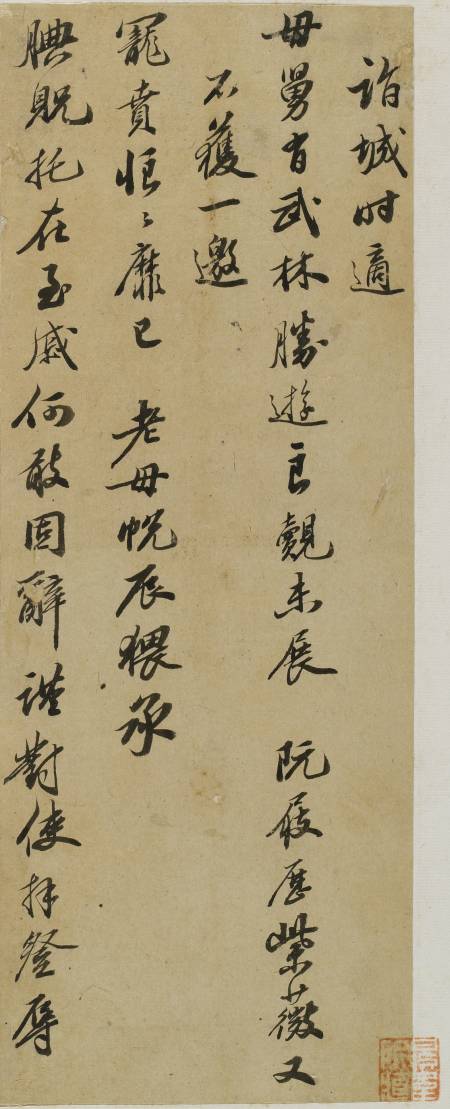 詣城時適
母舅有武林勝遊良覿未展 阮屐歷紫薇又
不獲一邀
寵賁悵〻靡已 老母帨辰猥承
腆貺托在至戚何敢固辭謹對使拜登辱